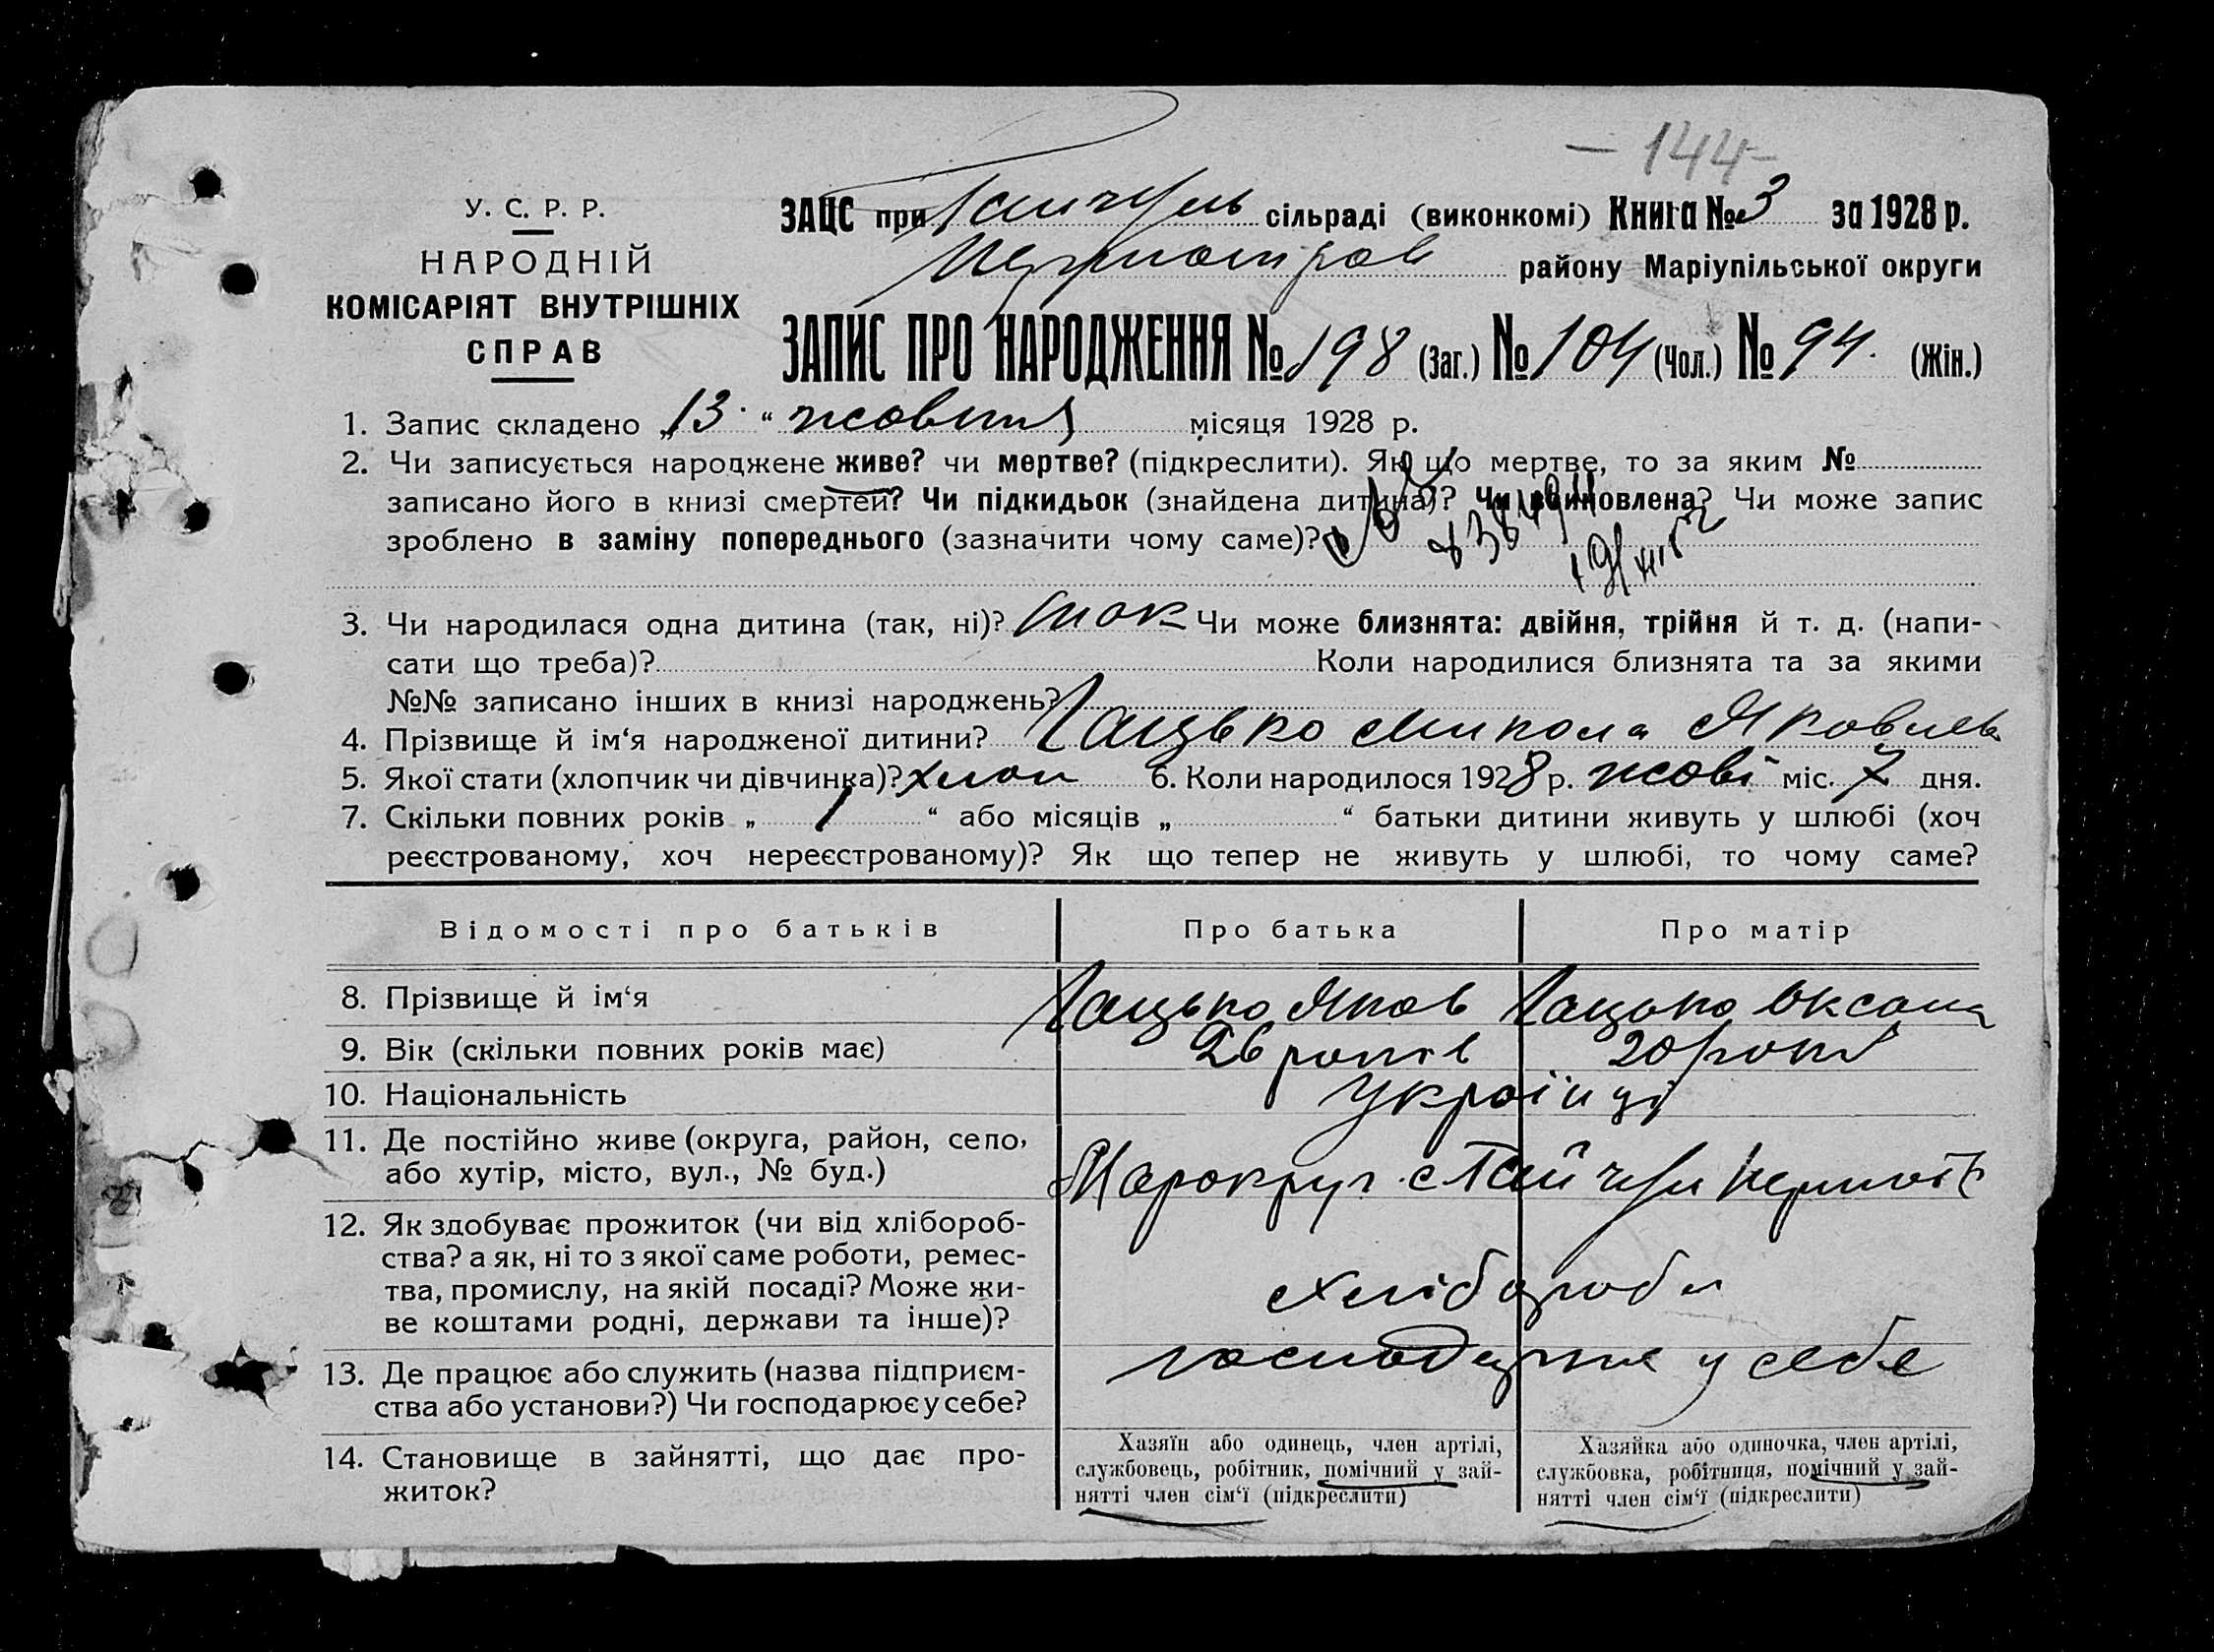 - 144 -
У. С. Р. Р.
НАРОДНІЙ
КОМІСАРІЯТ ВНУТРІШНІХ
СПРАВ
ЗАЦС при Гайчуль сільраді (виконкомі) Книга № 3 за 1928 р.
району Маріупільської округи
ЗАПИС ПРО НАРОДЖЕННЯ № 198 (Заг.) № 104 (Чол.) № 94. (Жін.)
1. Запис складено „13“ жовтня місяця 1928 р.
2. Чи записується народжене живе? чи мертве? (підкреслити). Як що мертве, то за яким №
записано його в книзі смертей? Чи підкидьок (знайдена дитина)? Чи виновлена? Чи може запис
зроблено в заміну попереднього (зазначити чому саме)?
3. Чи народилася одна дитина (так, ні)? так Чи може близнята: двійня, трійня й т. д. (напи-
сати що треба)? Коли народилися близнята та за якими
№№ записано інших в книзі народжень?
4. Прізвище й ім‘я народженої дитини? Гацько Микола Яковлев
5. Якої стати (хлопчик чи дівчинка)? хлоп 6. Коли народилося 1928 р. жові міс. 7 дня.
7. Скільки повних років „ 1 “ або місяців „ “ батьки дитини живуть у шлюбі (хоч
реєстрованому, хоч нереєстрованому)? Як що тепер не живуть у шлюбі, то чому саме?
Відомості про батьків Про батька Про матір
8. Прізвище й ім‘я Гацько Яков Гацько Оксана
9. Вік (скільки повних років має) 26 років 20 років
10. Національність Українці
11. Де постійно живе (округа, район, село,
або хутір, місто, вул., № буд.) Марокруг с Гайчул
12. Як здобуває прожиток (чи від хлібороб-
ства? а як, ні то з якої саме роботи, ремес-
тва, промислу, на якій посаді? Може жи-
ве коштами родні, держави та інше)? хлібороби
13. Де працює або служить (назва підприєм-
ства або установи?) Чи господарює у себе? у себе
14. Становище в зайнятті, що дає про-
житок?
Хазяїн або одинець, член артілі,
службовець, робітник, помічний у зай-
нятті член сім‘ї (підкреслити)
Хазяйка або одиночка, член артілі,
службовка, робітниця, помічний у зай-
нятті член сім‘ї (підкреслити)